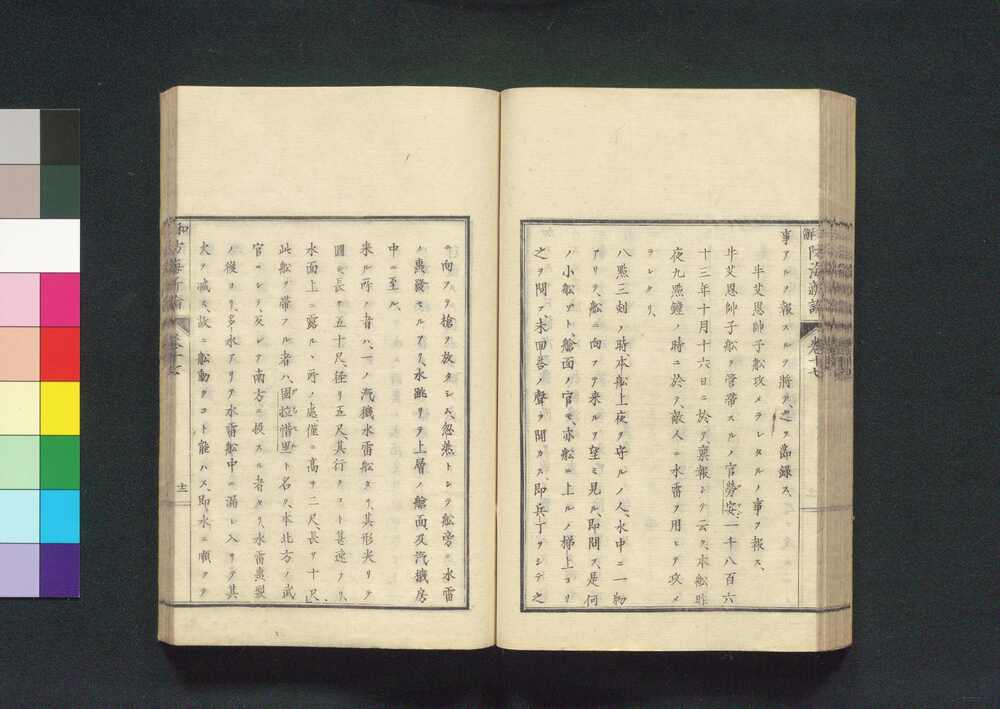 事アルヲ報スルヲ將テ、之ヲ節録ス、
牛艾恩帥子船攻メラレタルノ事ヲ報ス、
牛艾恩帥子船ヲ管帶スルノ官勞安一千八百六
十三年十月十六日ニ於テ稟報シテ云ク、本船昨
夜九點鐘ノ時ニ於テ、敵人ニ水雷ヲ用ヒテ攻メ
ラレタリ、
八點三刻ノ時本船上夜ヲ守ルノ人、水中ニ一物
アリテ、船ニ向フテ來ルヲ望ミ見ル、即問ス、是何
ノ小船ゾト、艙面ノ官モ、亦船ニ上ルノ梯上ヨリ
之ヲ問フ、未回荅ノ聲ヲ聞カス、即兵丁ヲシテ之
卷十七
ニ向フテ槍ヲ放タシム、忽然トシテ船旁ニ水雷
ノ轟發スルアリ、水跳リテ上層ノ艙面及汽機房
中ニ至ル、
來ル所ノ者ハ、一ノ汽機水雷船タリ、其形尖リテ
圓ク、長サ五十尺、徑リ五尺、其行クコト甚速クシテ、
水面上ニ露ルヽ所ノ處僅ニ高サ二尺、長サ十尺、
此船ヲ帶フル者ハ、固拉惜里ト名ク、本北方ノ武
官ニシテ、反シテ南方ニ投スル者タリ、水雷轟裂
ノ後ヨリ、多水アリテ水雷船中ニ漏レ入リテ其
火ヲ滅ス、故ニ船動クコト能ハス、即水ニ順ヲテ
十三